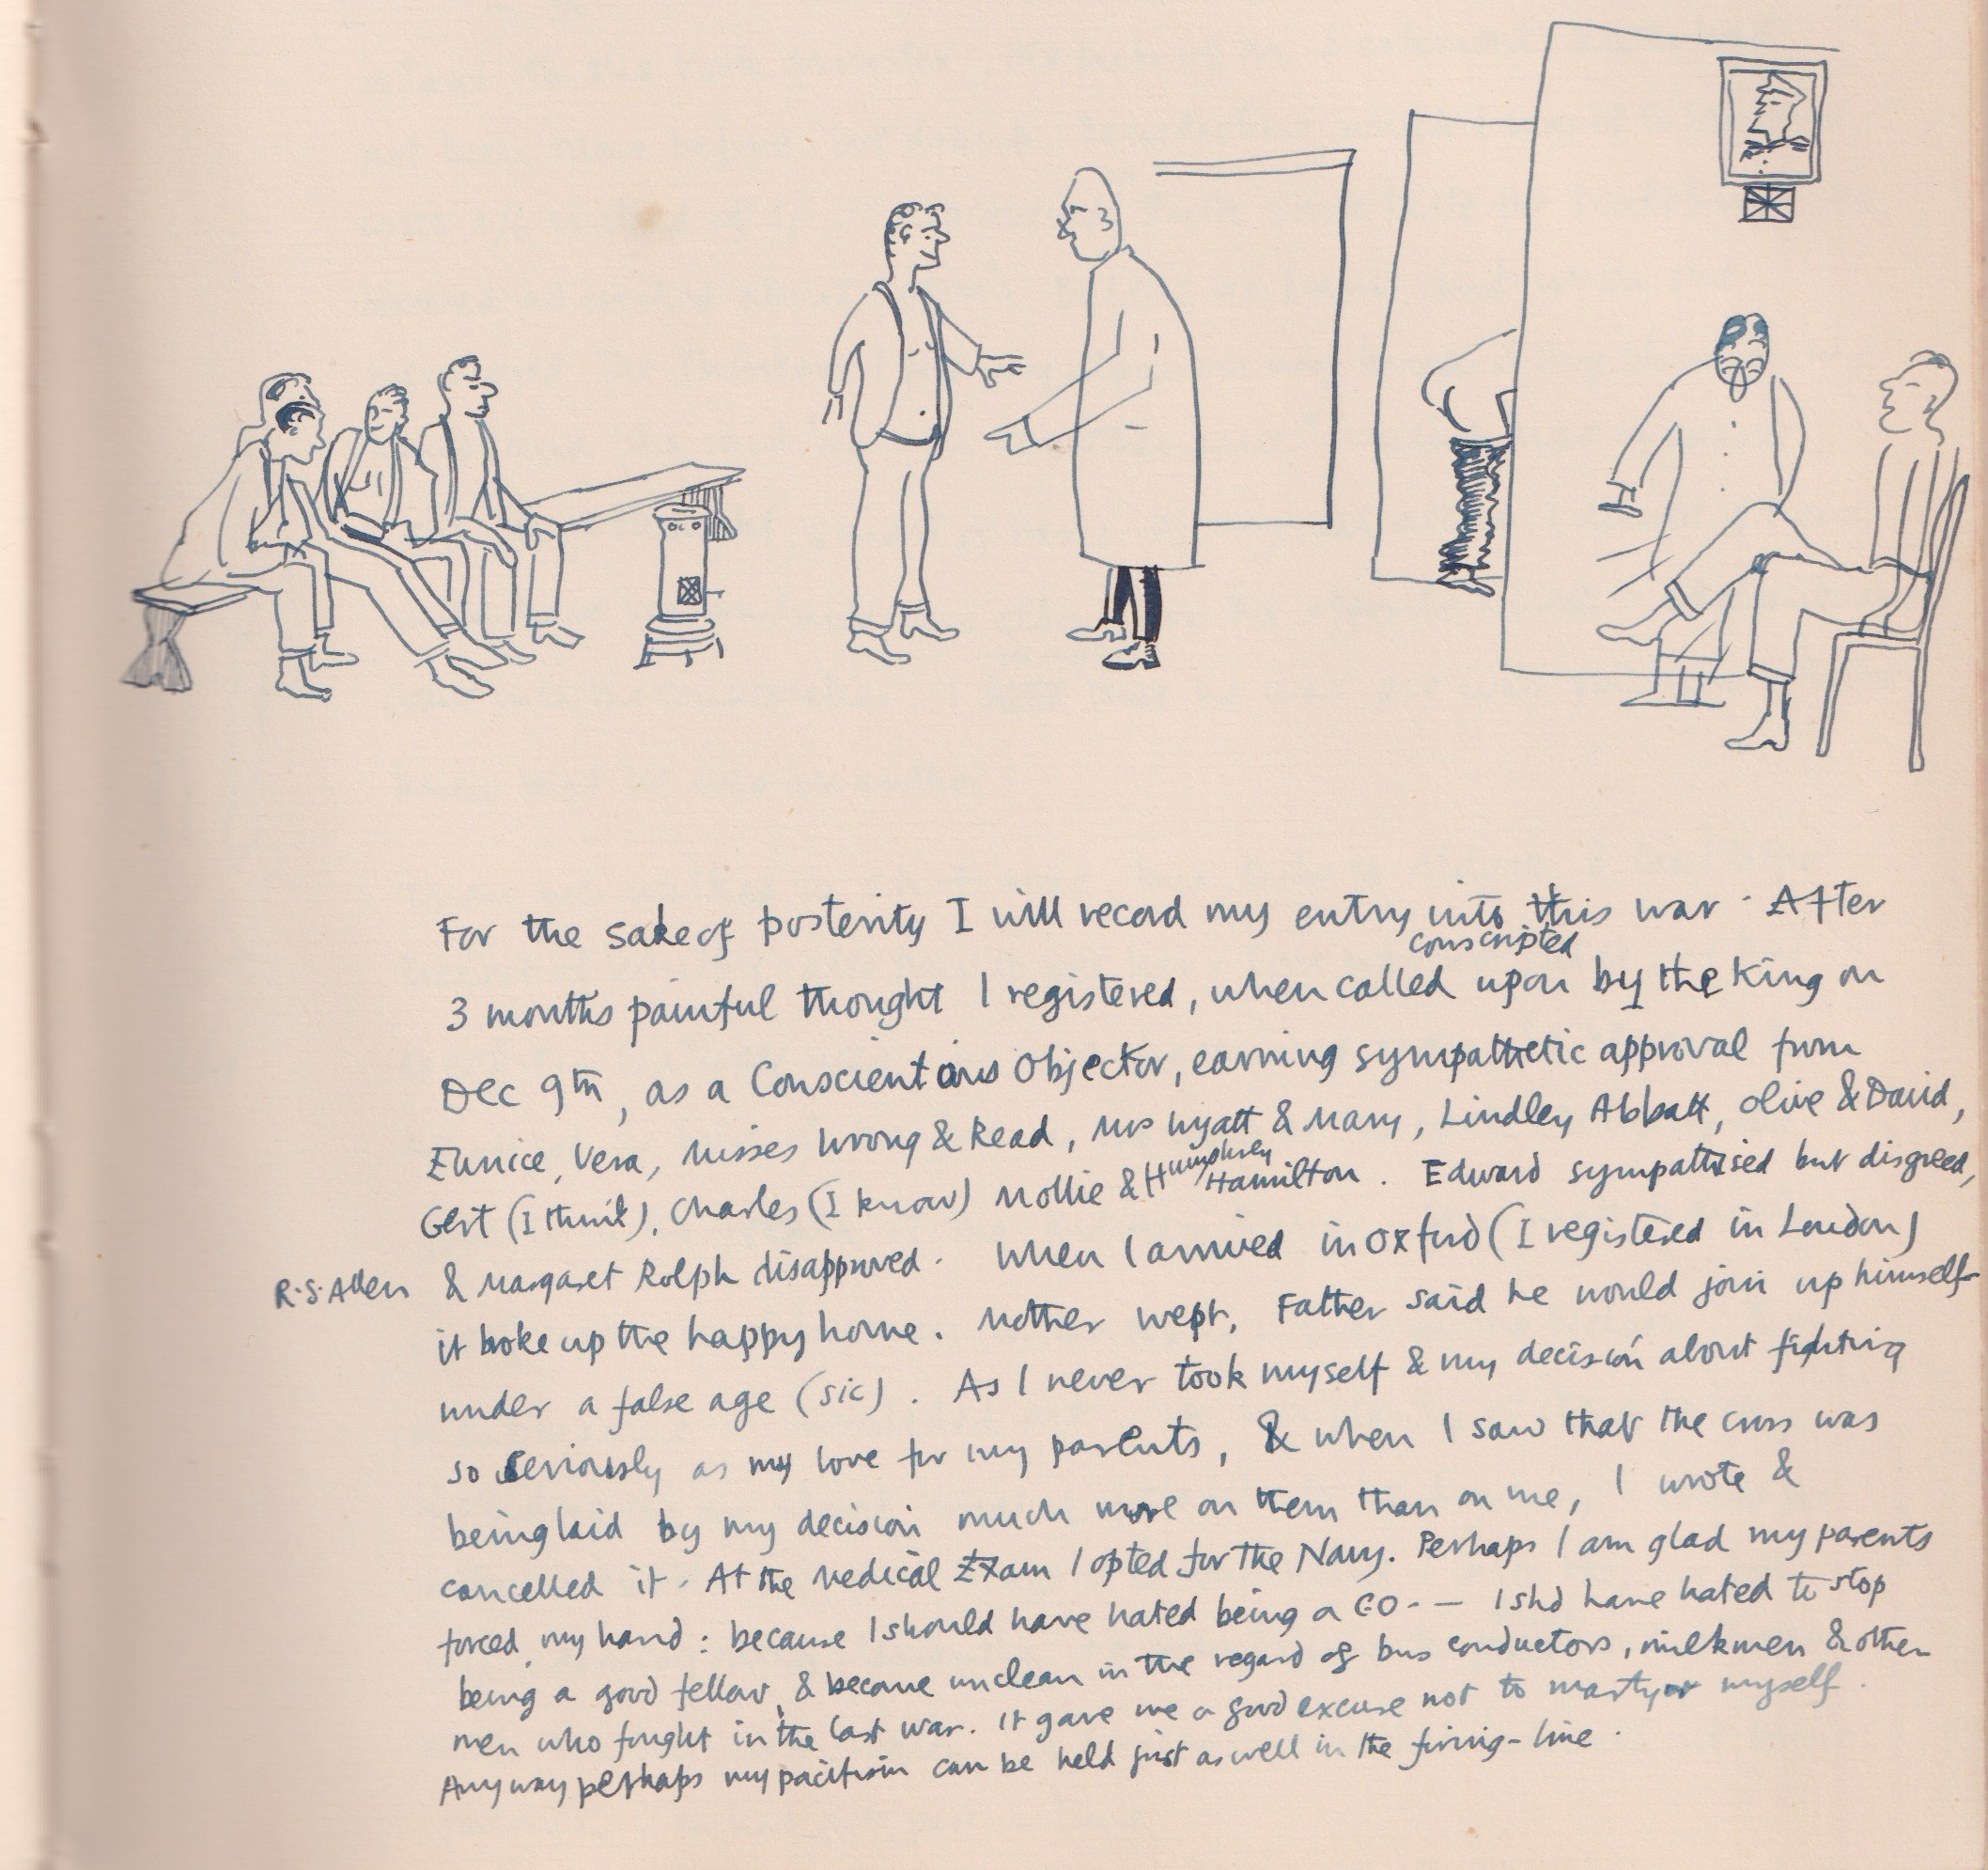 For the sake of posterity I will record my entry into this war. After
conscripted
3 months painful thought I registered, when called upon by the King on
Dec 9th, as a Conscientious Objector, earning sympathetic approval from
Eunice, Vera, Misses Wrong & Read, Mrs Wyatt & Mary, Lindley Abbatt, Olive & David,
Humphrey
Gert (I think), Charles (I know) Mollie & Hamilton. Edward sympathised but disgreed,
R.S. Allen & Margaret Rolph disapproved. When I arrived in Oxford (I registered in London)
it broke up the happy home. Mother wept, Father said he would join up himself
under a false age (sic). As I never took myself & my decision about fighting
so seriously as my love for my parents, & when I saw that the cross was
being laid by my decision much more on them than on me, I wrote &
cancelled it. At the Medical Exam I opted for the Navy. Perhaps I am glad my parents
forced my hand: because I should have hated being a CO. — I shd have hated to stop
being a good fellow, & become unclean in the regard of bus conductors, milkmen & other
men who fought in the last war. It gave me a good excuse not to martyr myself.
Anyway perhaps my pacifism can be held just as well in the firing-line.